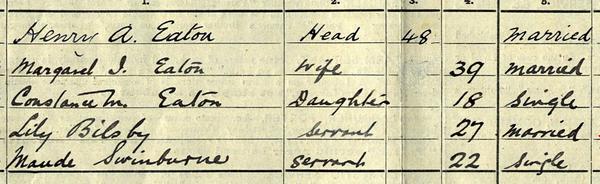 1. 2. 3. 4. 5.
Henry A. Eaton Head 48 Married
Margaret I. Eaton Wife 39 Married
Constance M. Eaton Daughter 18 Single
Lily Bilsby Servant 27 Married
Maude Swinburne Servant 22 Single